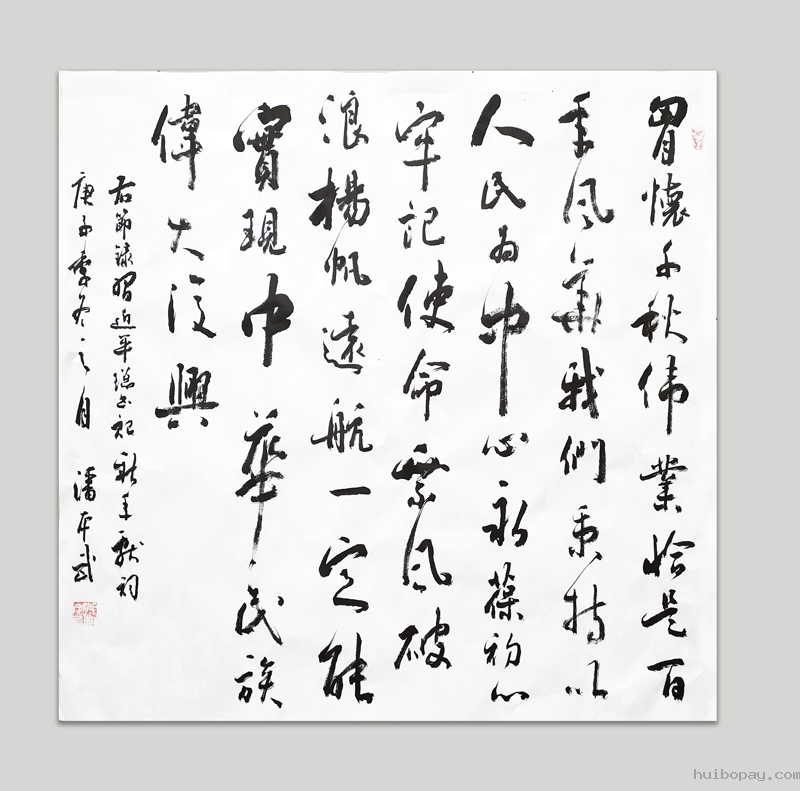 胷懷千秋伟業恰是百
年風華我們秉持以
人民為中心永葆初心
牢記使命乘風破
浪楊帆遠航一定能
實現中華民族
偉大復興
右節録習近平總书記新年獻詞
庚子季冬之月 潘武
huibopay.com